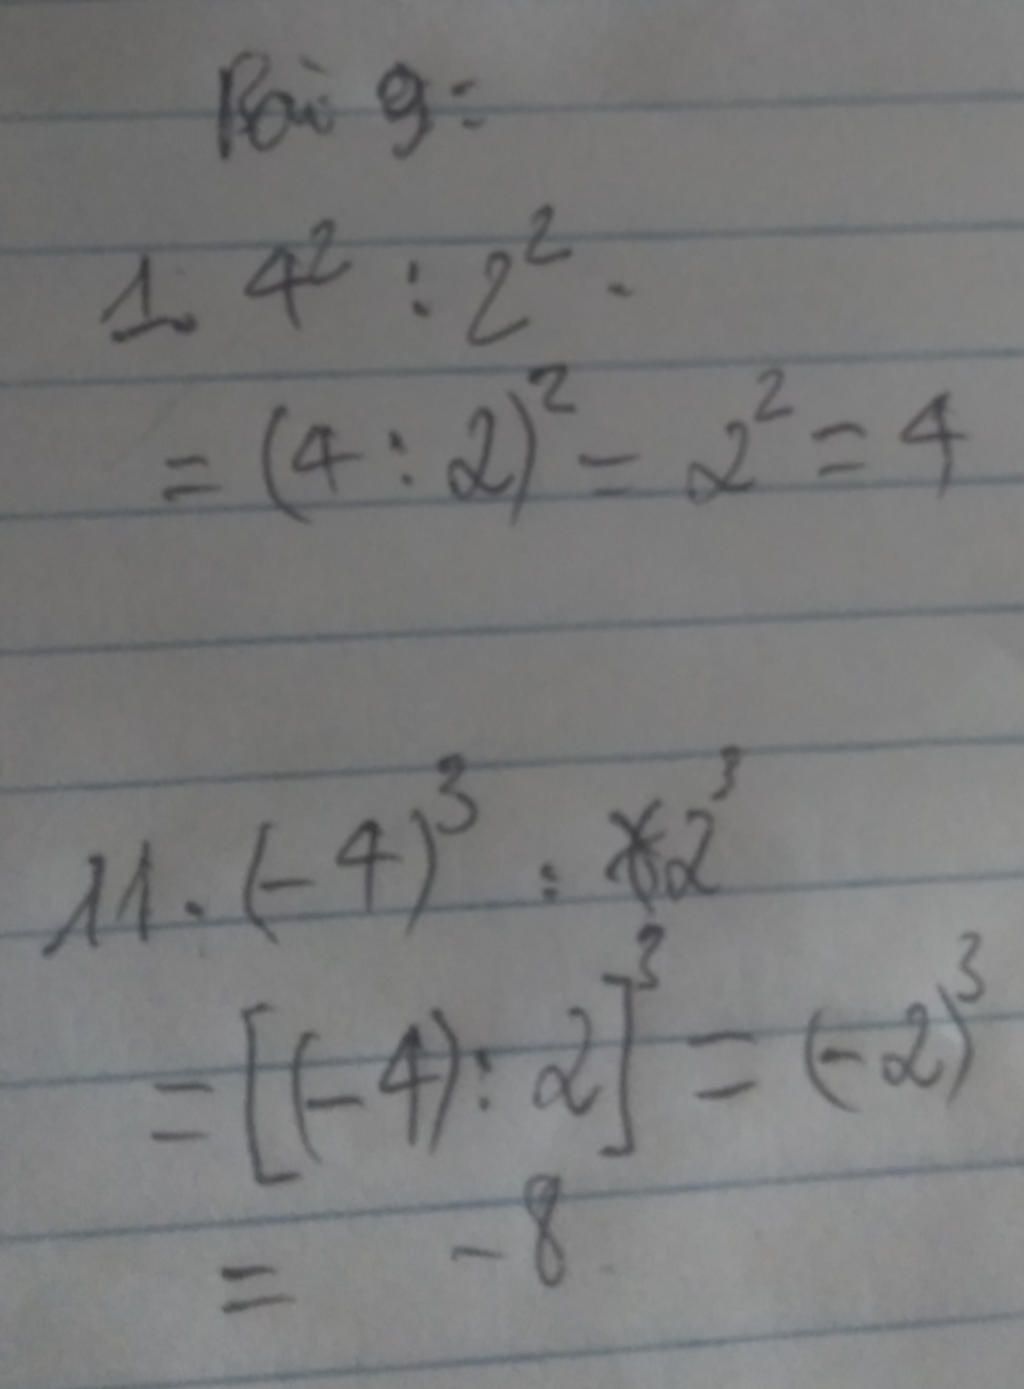 Bài 9:
1. 4² : 2².
= (4 : 2)² = 2² = 4
11. (-4)³ : 2³
= [(-4) : 2]³ = (-2)³
= -8